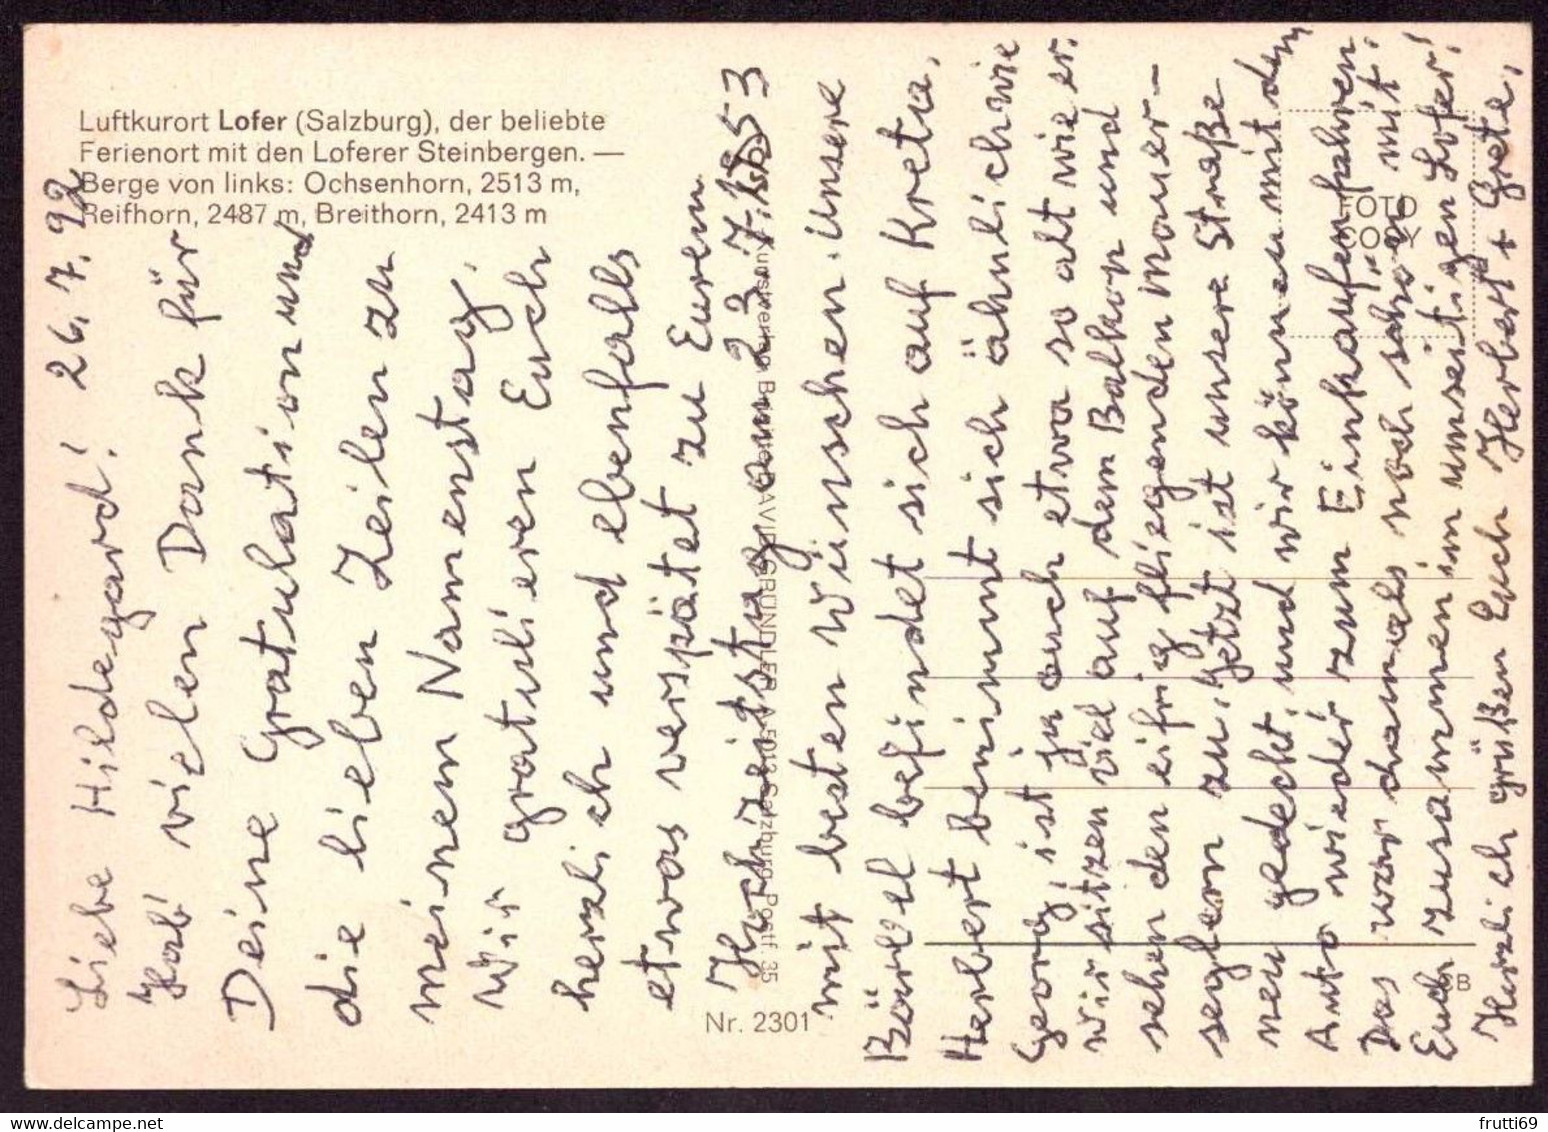 Luftkurort Lofer (Salzburg), der beliebte
Ferienort mit den Loferer Steinbergen. —
Berge von links: Ochsenhorn, 2513 m,
Reifhorn, 2487 m, Breithorn, 2413 m
Liebe Hildegard! 26.7.92
Hab' vielen Dank für
Deine Gratulation und
die lieben Zeilen zu
meinem Namenstag.
Wir gratulieren Euch
herzlich und ebenfalls
etwas verspätet zu Eurem
Hochzeitstag am 23.7.1953
mit besten Wünschen. Unsere
Bärbel befindet sich auf Kreta.
Herbert benimmt sich ähnlich wie
Georg, ist ja auch etwa so alt wie er.
Wir sitzen viel auf dem Balkon und
sehen den eifrig fliegenden Mauer-
seglern zu. Jetzt ist unsere Straße
neu gedeckt, und wir können mit dem
Auto wieder zum Einkaufen fahren.
Das war damals noch schön mit
Euch zusammen im umseitigen Lofer!
Herzlich grüßen Euch Herbert + Grete.
GRÜNDLER A 5013 Salzburg, Postf. 35
Nr. 2301
FOTO
COSY
frutti69